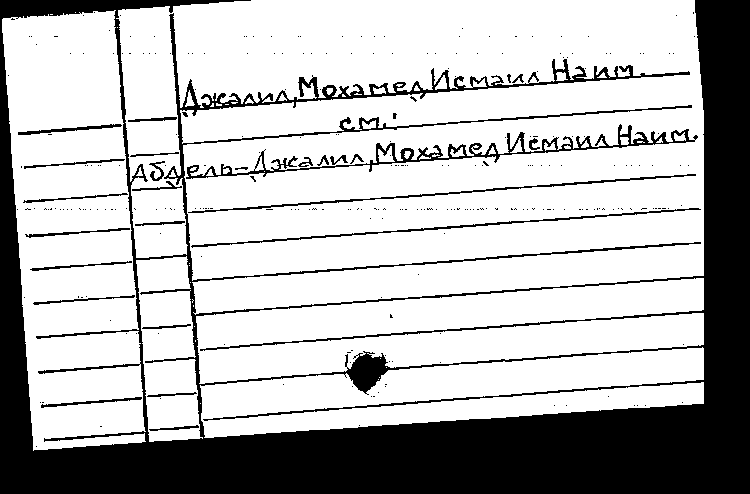 Джалил, Мохамед Исмаил Наим.
см.:
Абдель-Джалил, Мохамед Исмаил Наим.